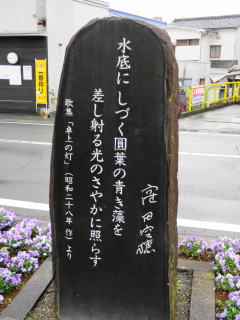 水底に しづく圓葉の青き藻を
差し射る光のさやかに照らす
窪田空穂
歌集「卓上の灯」(昭和二十八年作)より